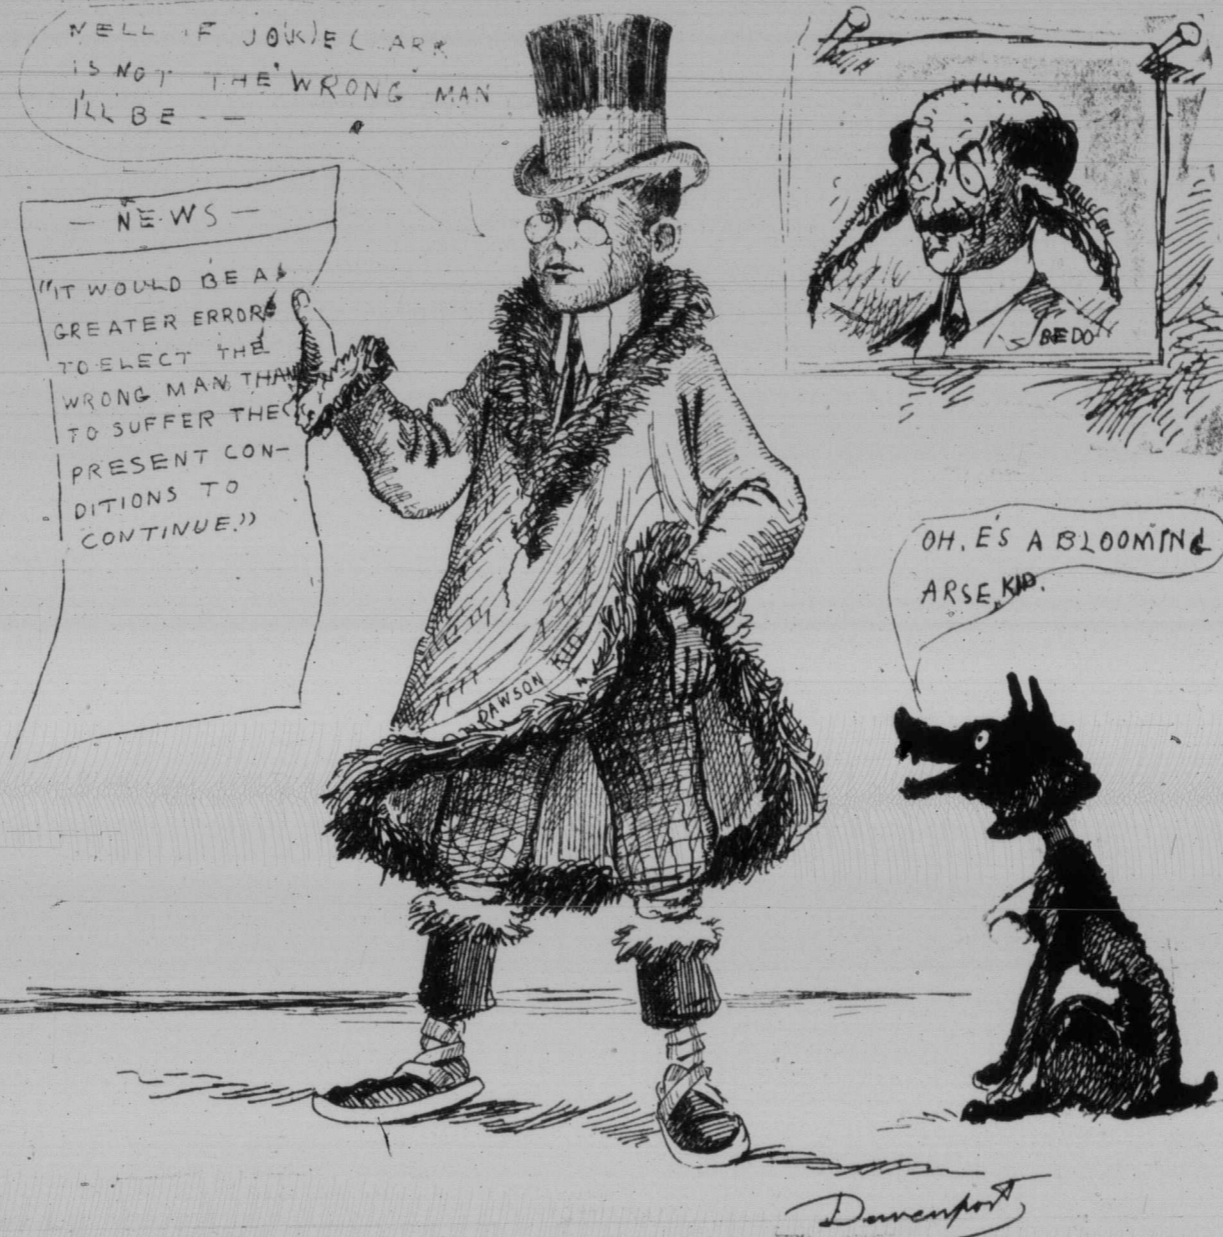 WELL IF JOE CLARK
IS NOT THE WRONG MAN
I'LL BE - -
- NEWS -
"IT WOULD BE A
GREATER ERROR
TO ELECT THE
WRONG MAN THAN
TO SUFFER THE
PRESENT CON-
DITIONS TO
CONTINUE."
BEDO
OH, E'S A BLOOMING
ARSE, KID.
DAWSON KID
Davenport